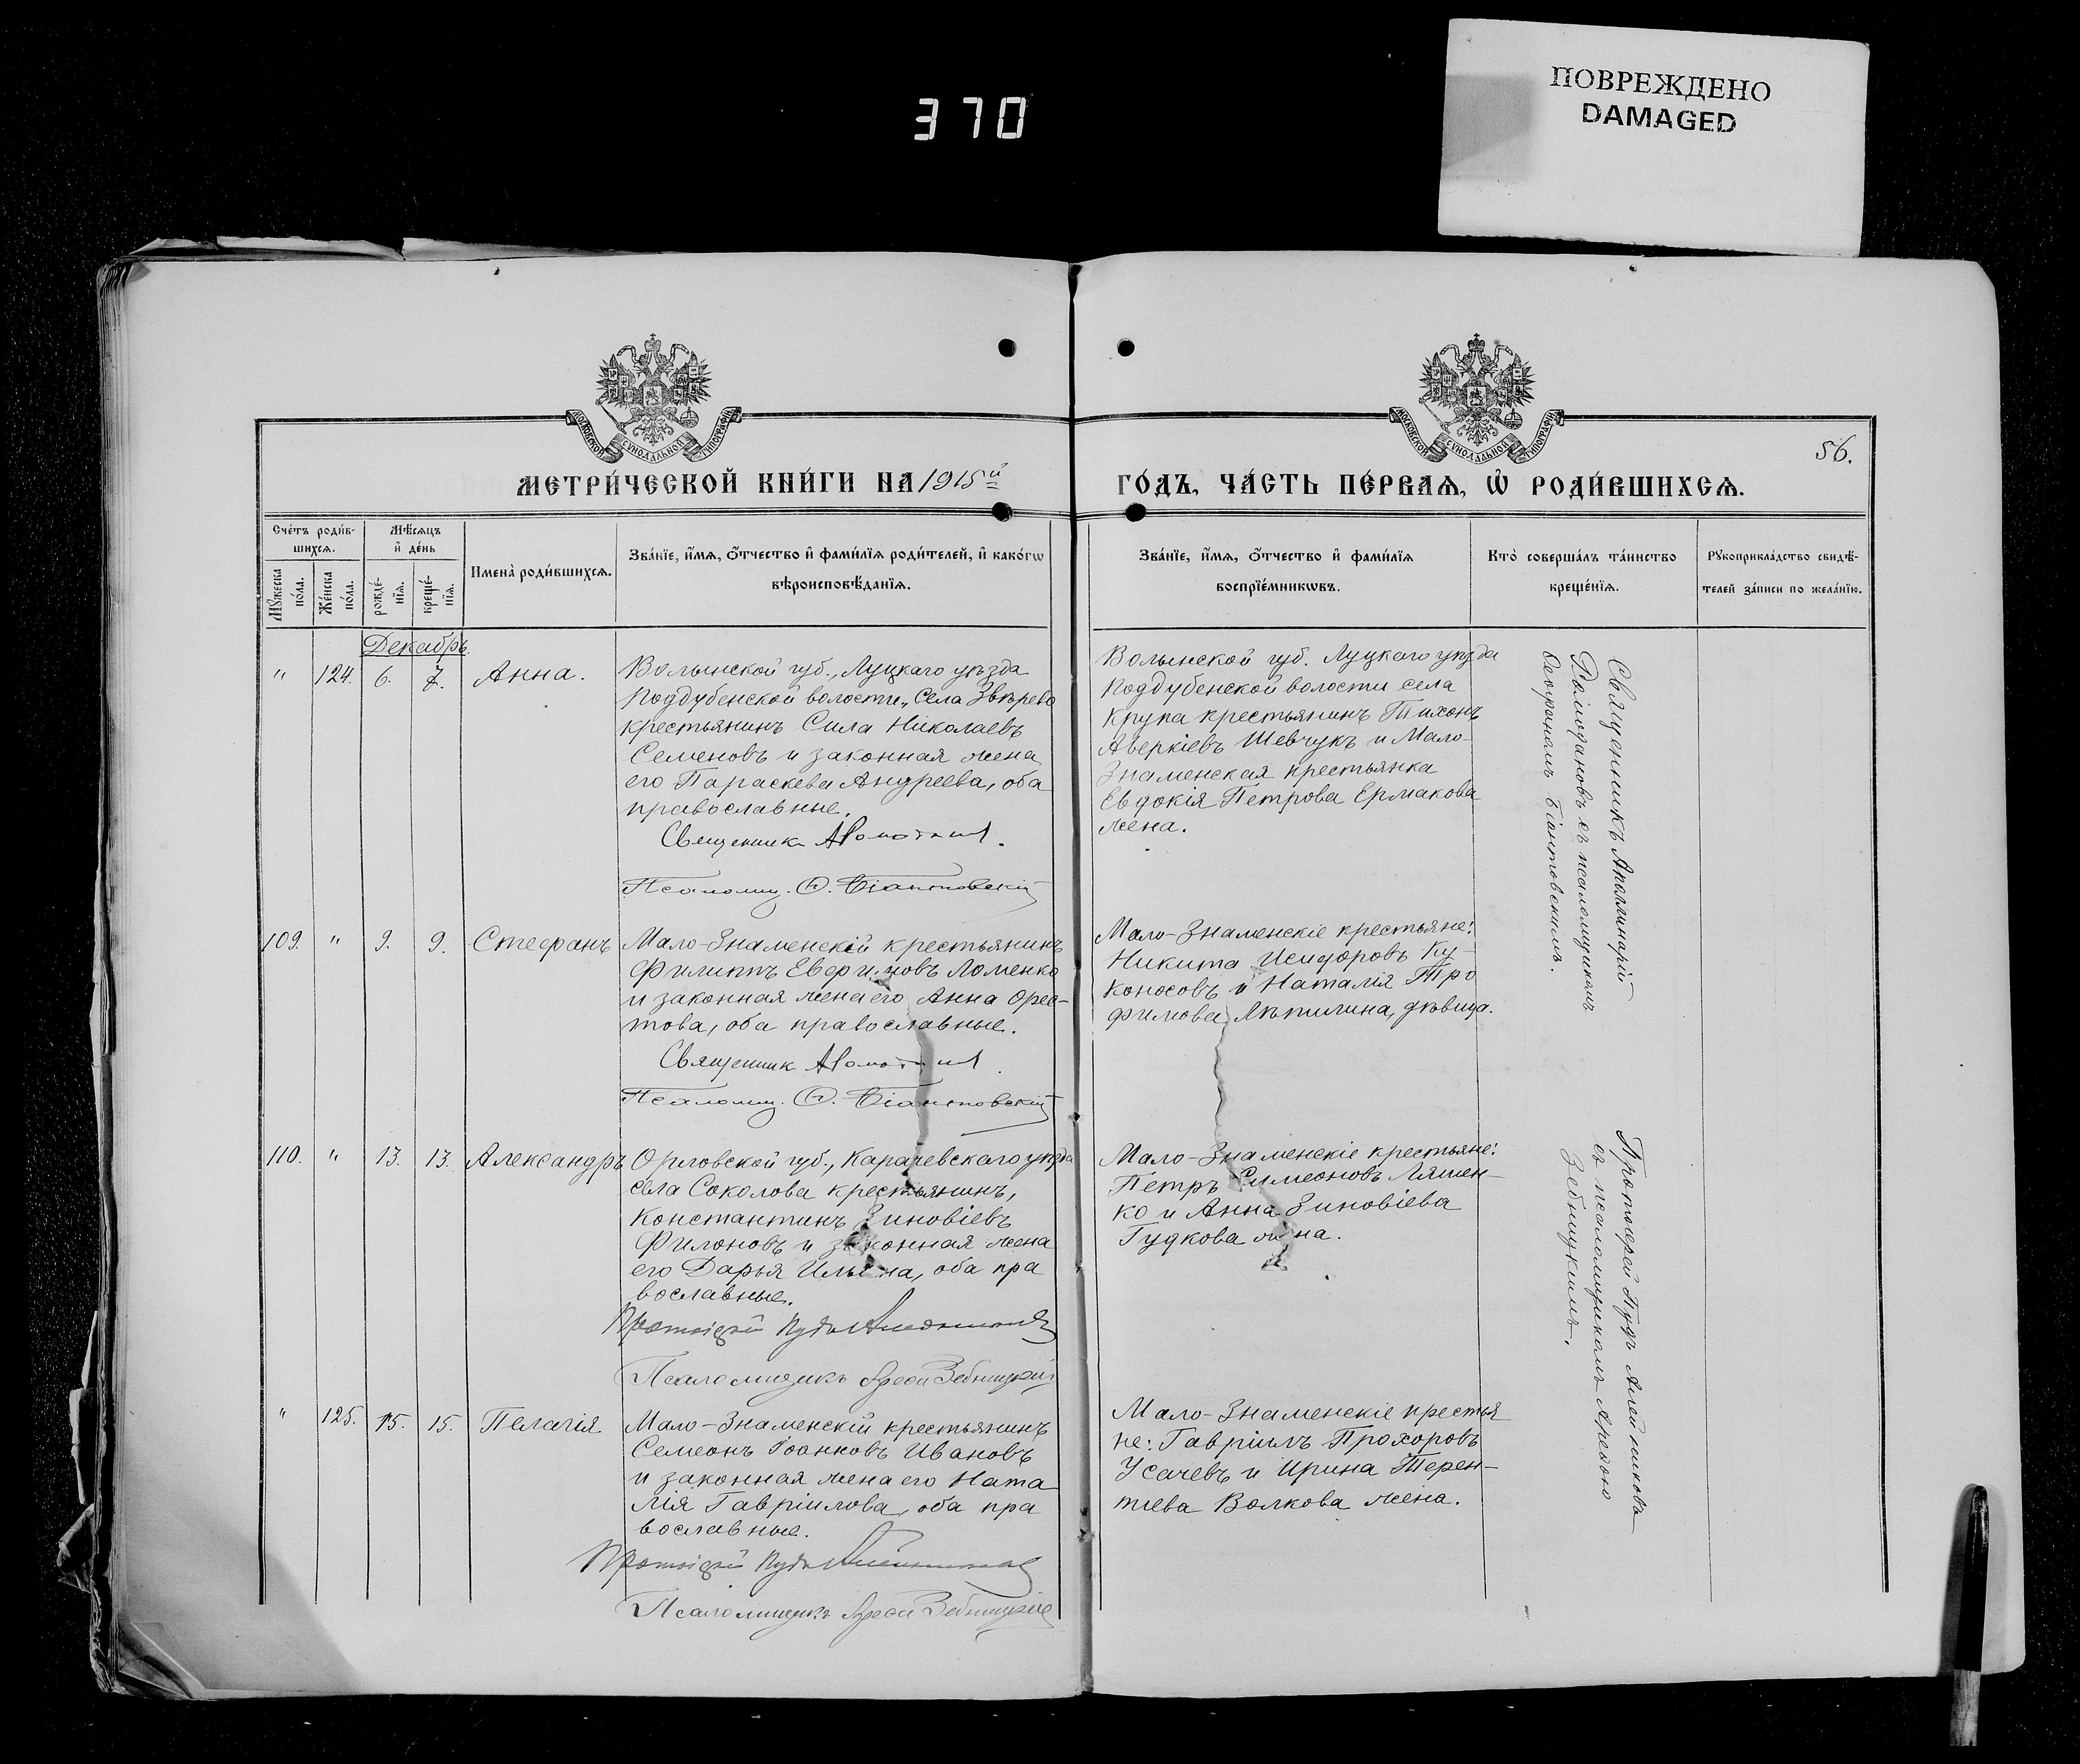 370
ПОВРЕЖДЕНО
DAMAGED
МОСКОВСКОЙ СѴНОДАЛЬНОЙ ТИПОГРАФІИ
МОСКОВСКОЙ СѴНОДАЛЬНОЙ ТИПОГРАФІИ
56.
МЕТРИ́ЧЕСКОЙ КНИ́ГИ НА 1915й
ГО́ДЪ, ЧА́СТЬ ПЕ́РВАѦ, Ѡ҆ РОДИ́ВШИХСѦ.
Сче́тъ роди́в-
шихсѧ.
Мѣ́сѧцъ
и҆ де́нь
Мꙋ́жеска
по́ла.
Же́нска
по́ла.
рожде́-
нїѧ.
креще́-
нїѧ.
Имена̀ роди́вшихсѧ.
Зва́нїе, и҆́мѧ, ѻ҆́тчество и҆ фами́лїѧ роди́телей, и҆ како́гѡ
вѣроисповѣ́данїѧ.
Зва́нїе, и҆́мѧ, ѻ҆́тчество и҆ фами́лїѧ
воспрїе́мникѡвъ.
Кто̀ соверша́лъ та́инство
креще́нїѧ.
Рꙋкоприкла́дство свидѣ́-
телей за́писи по жела́нїю.
Декабрь.
" 124. 6. 7. Анна.
Волынской губ., Луцкаго уѣзда
Поддубенской волости, села Звѣрево
крестьянинъ Сила Николаевъ
Семеновъ и законная жена
его Параскева Андреева, оба
православные.
Священникъ
Псаломщ. Ѳ. Біантовскій
Волынской губ. Луцкаго уѣзда
Поддубенской волости села
Крупа крестьянинъ Тихонъ
Аверкіевъ Шевчукъ и Мало-
Знаменская крестьянка
Евдокія Петрова Ермакова
жена.
Священникъ Аполлинарій
съ псаломщикомъ
Біантовскимъ.
109. " 9. 9. Стефанъ
Мало-Знаменскій крестьянинъ
Филиппъ Евфимовъ Ломенко
и законная жена его Анна Орес-
това, оба православные.
Священникъ
Псаломщ. Ѳ. Біантовскій
Мало-Знаменскіе крестьяне:
Никита Исидоровъ Ку-
коносовъ и Наталія Тро
фимова Лѣпилина, дѣвица.
110. " 13. 13. Александръ
Орловской губ., Карачевскаго уѣзда
села Соколова крестьянинъ,
Константинъ Зиновіевъ
Филоновъ и законная жена
его Дарья Ильина, оба пра
вославные.
Протоіерей Пудъ Алейниковъ
Псаломщикъ Зебницкій
Мало-Знаменскіе крестьяне:
Петръ Симеоновъ Ляшен-
ко и Анна Зиновіева
Гудкова жена.
Протоіерей Пудъ Алейниковъ
съ псаломщикомъ
Зебницкимъ.
" 125. 15. 15. Пелагія
Мало-Знаменскій крестьянинъ
Семеонъ Іоанновъ Ивановъ
и законная жена его Ната
лія Гавріилова, оба пра
вославные.
Протоіерей Пудъ Алейниковъ
Псаломщикъ Зебницкій
Мало-Знаменскіе крестья
не: Гавріилъ Прохоровъ
Усачевъ и Ирина Терен-
тіева Волкова жена.